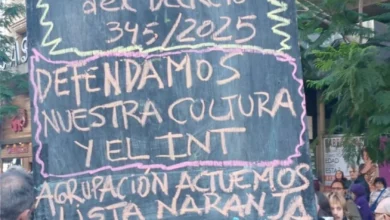 del Decreto
345/2025
DEFENDAMOS
NUESTRA CULTURA
Y EL INT
AGRUPACIÓN ACTUEMOS
LISTA NARANJA